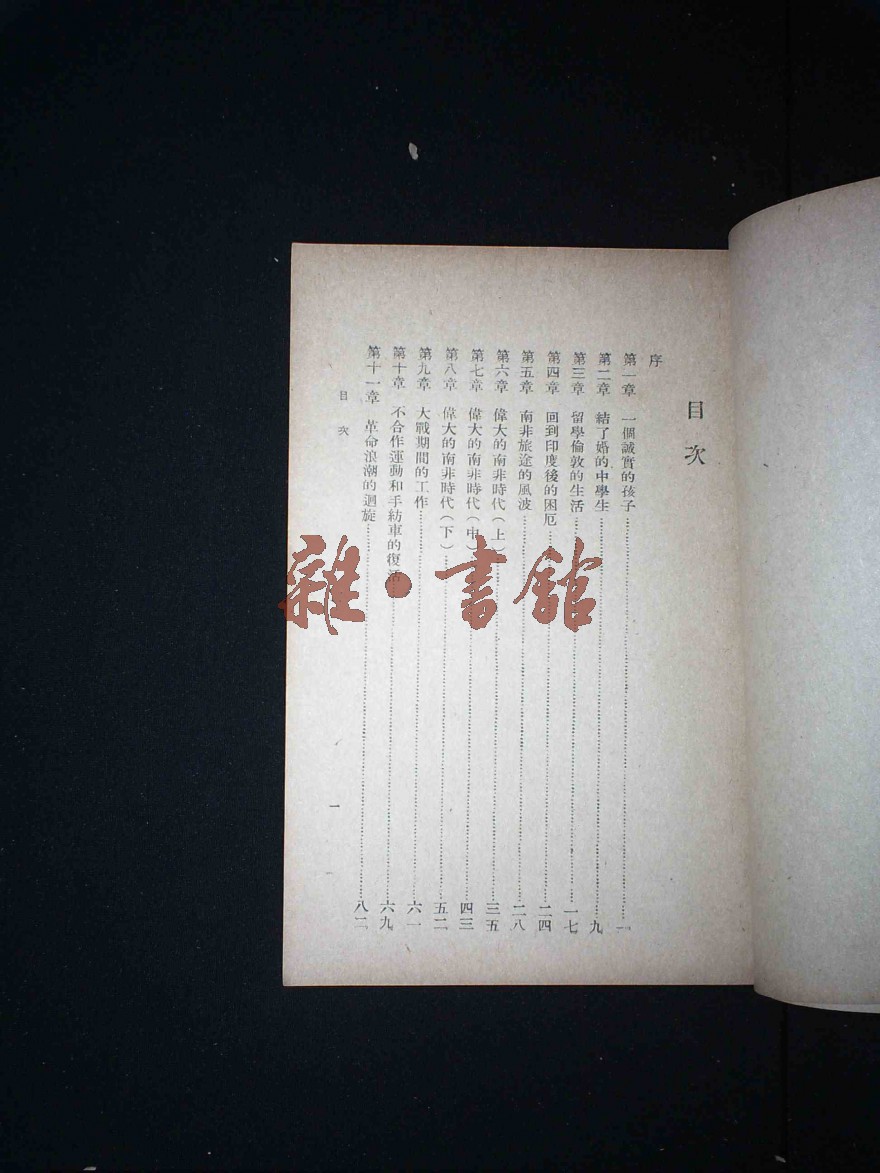 目次
序
第一章 一個誠實的孩子……一
第二章 結了婚的中學生……九
第三章 留學倫敦的生活……一七
第四章 回到印度後的困厄……二四
第五章 南非旅途的風波……二八
第六章 偉大的南非時代(上)……三五
第七章 偉大的南非時代(中)……四三
第八章 偉大的南非時代(下)……五二
第九章 大戰期間的工作……六一
第十章 不合作運動和手紡車的復活……六九
第十一章 革命浪潮的迴旋……八二
目次
一
雜·書館